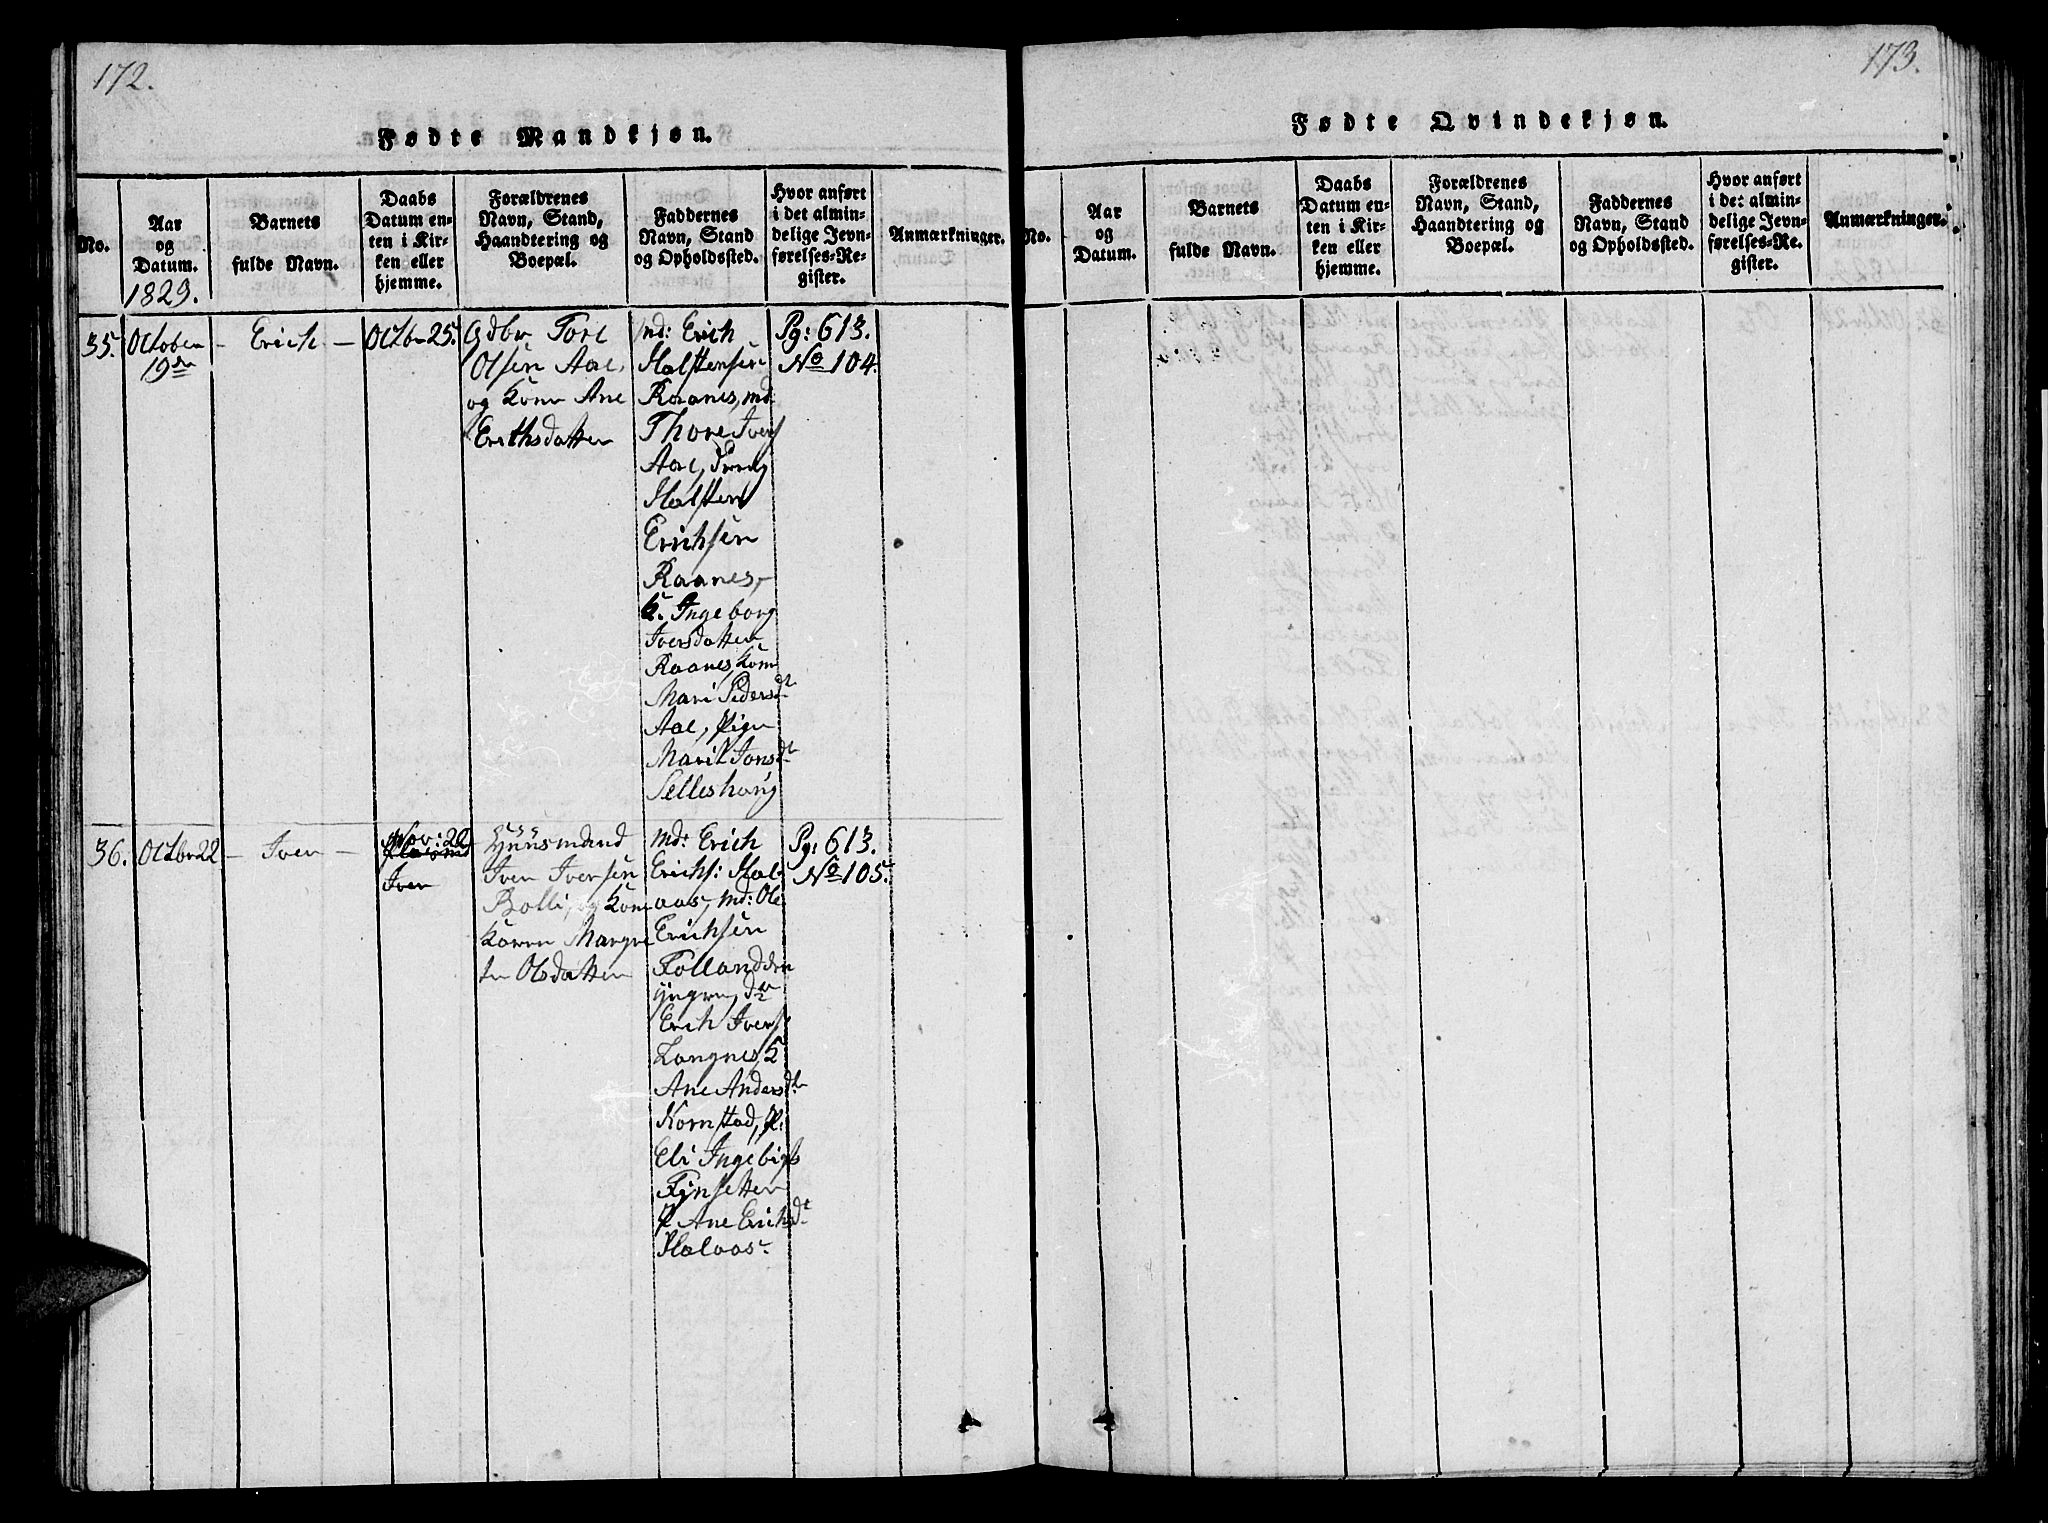 172.
Fødte Mandkjøn.
No.
Aar
og
Datum.
1829.
Barnets
fulde Navn.
Daabs
Datum en-
ten i Kir-
ken eller
hjemme.
Forældrenes
Navn, Stand,
Haandtering og
Boepæl.
Faddernes
Navn, Stand
og Opholdssted.
Hvor anført
i det almin-
delige Jevn-
førelses-Re-
gister.
Anmærkninger.
35.
October
19de
- Erich -
Octbr 25.
Gdbr Tore
Olsen Aae,
og Kone Ane
Erichsdatter
md: Erich
Halstensen
Raanes, md:
Thore Ivers
Aae, Dreng
Halsten
Erichsen
Raanes,
K. Ingeborg
Iversdatter
Raanes, Kone
Mari Pedersdt
Aae, Pige
Marit Jonsdt
Selleshoug
Pg: 613.
No 104.
36.
Octbr 22
- Iver -
Nov: 22
Iver
Huusmand
Iver Iversen
Bolli, og Kone
Karen Margre
te Olsdatter
md: Erich
Erichs: Hal-
aas, md: Ole
Erichsen
Folland den
yngre, dr
Erich Ivers
Langnes, K
Ane Andersdt
Kornstad, P:
Eli Ingebigs
Fynsetter
P Ane Erichsdt
Halaas
Pg: 613.
No 105.
173.
Fødte Qvindekjøn.
No.
Aar
og
Datum.
Barnets
fulde Navn.
Daabs
Datum en-
ten i Kir-
ken eller
hjemme.
Forældrenes
Navn, Stand,
Haandtering og
Boepæl.
Faddernes
Navn, Stand
og Opholdssted.
Hvor anført
i det almin-
delige Jevn-
førelses-Re-
gister.
Anmærkninger.